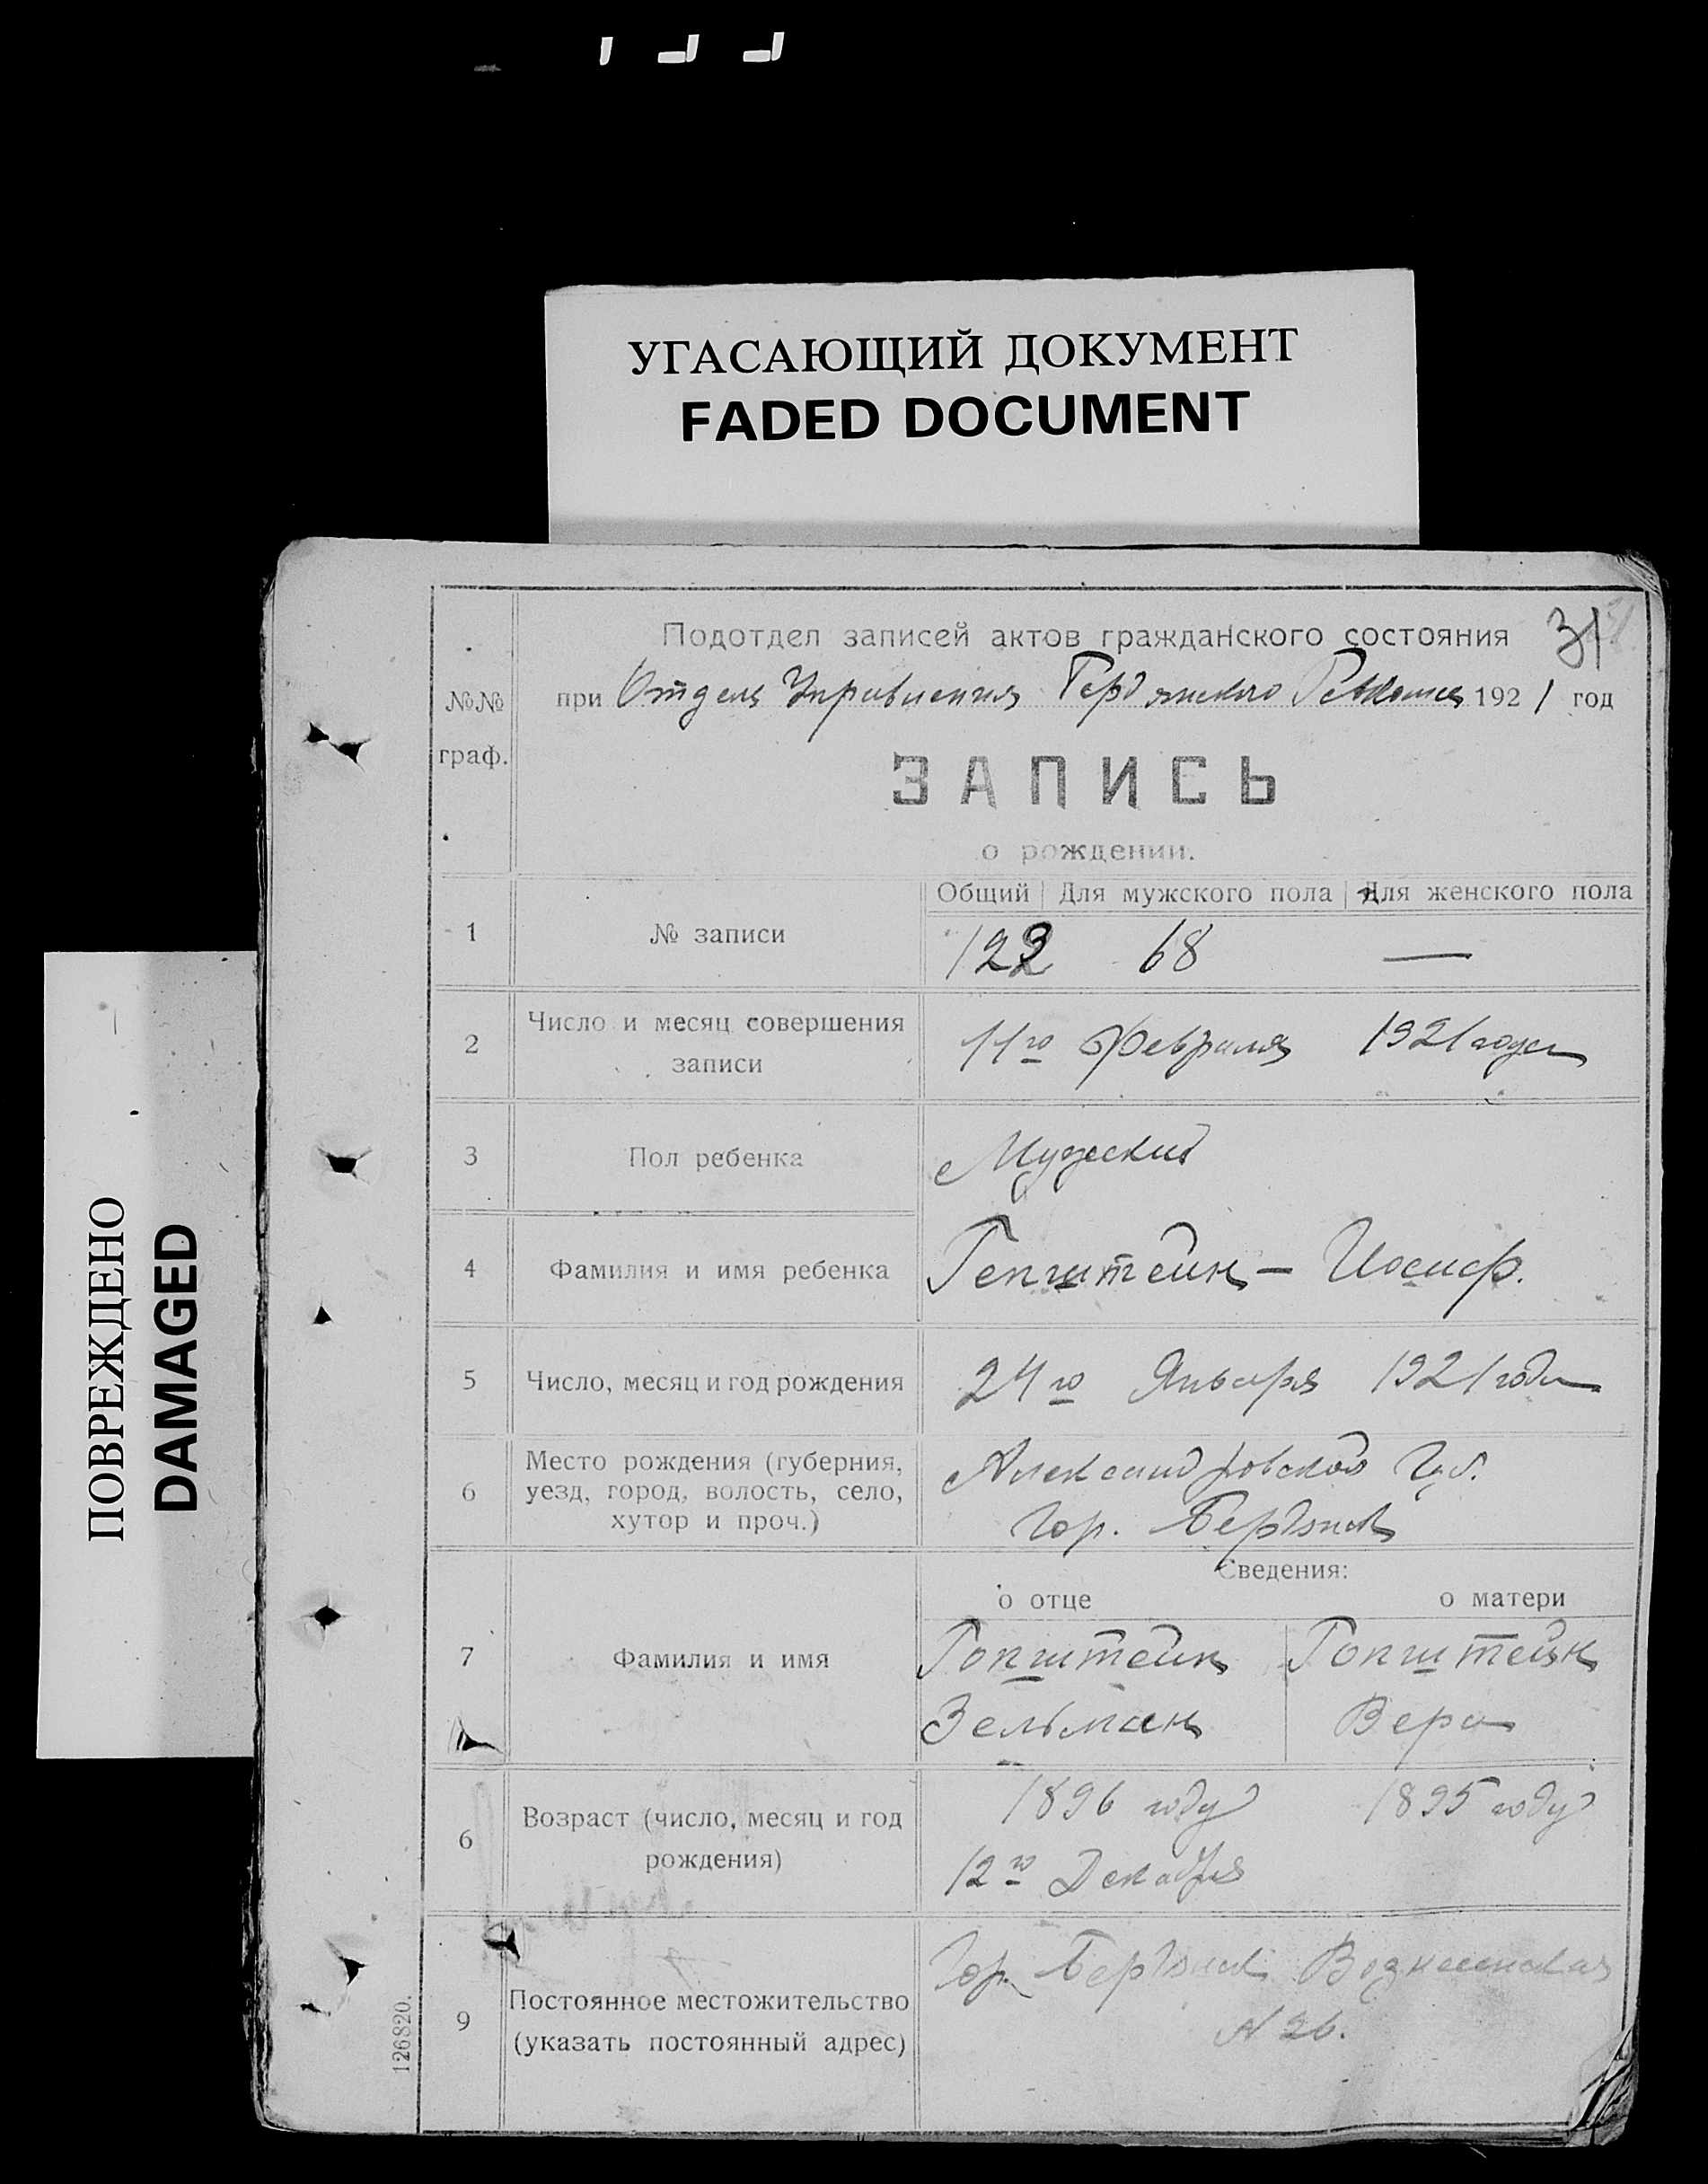 УГАСАЮЩИЙ ДОКУМЕНТ
FADED DOCUMENT
ПОВРЕЖДЕНО
DAMAGED
31
№№ граф.
Подотдел записей актов гражданского состояния
при Отдель Управления Бердянского Ревкома 1921 год
ЗАПИСЬ
о рождении.
Общий Для мужского пола Для женского пола
1 № записи 123 68 —
2 Число и месяц совершения
записи
11го Февраля 1921 года
3 Пол ребенка Мужеский
4 Фамилия и имя ребенка Гепштейн — Иосиф.
5 Число, месяц и год рождения 24го Января 1921 года
6 Место рождения (губерния,
уезд, город, волость, село,
хутор и проч.)
Александровской Губ.
Гор. Бердянск
Сведения:
о отце о матери
7 Фамилия и имя
Гопштейн Гопштейн
Зельман Вера
6 Возраст (число, месяц и год
рождения)
1896 году 1895 году
12го Декабря
9 Постоянное местожительство
(указать постоянный адрес)
Гор. Бердянск Вознесенская
N 26.
126820.